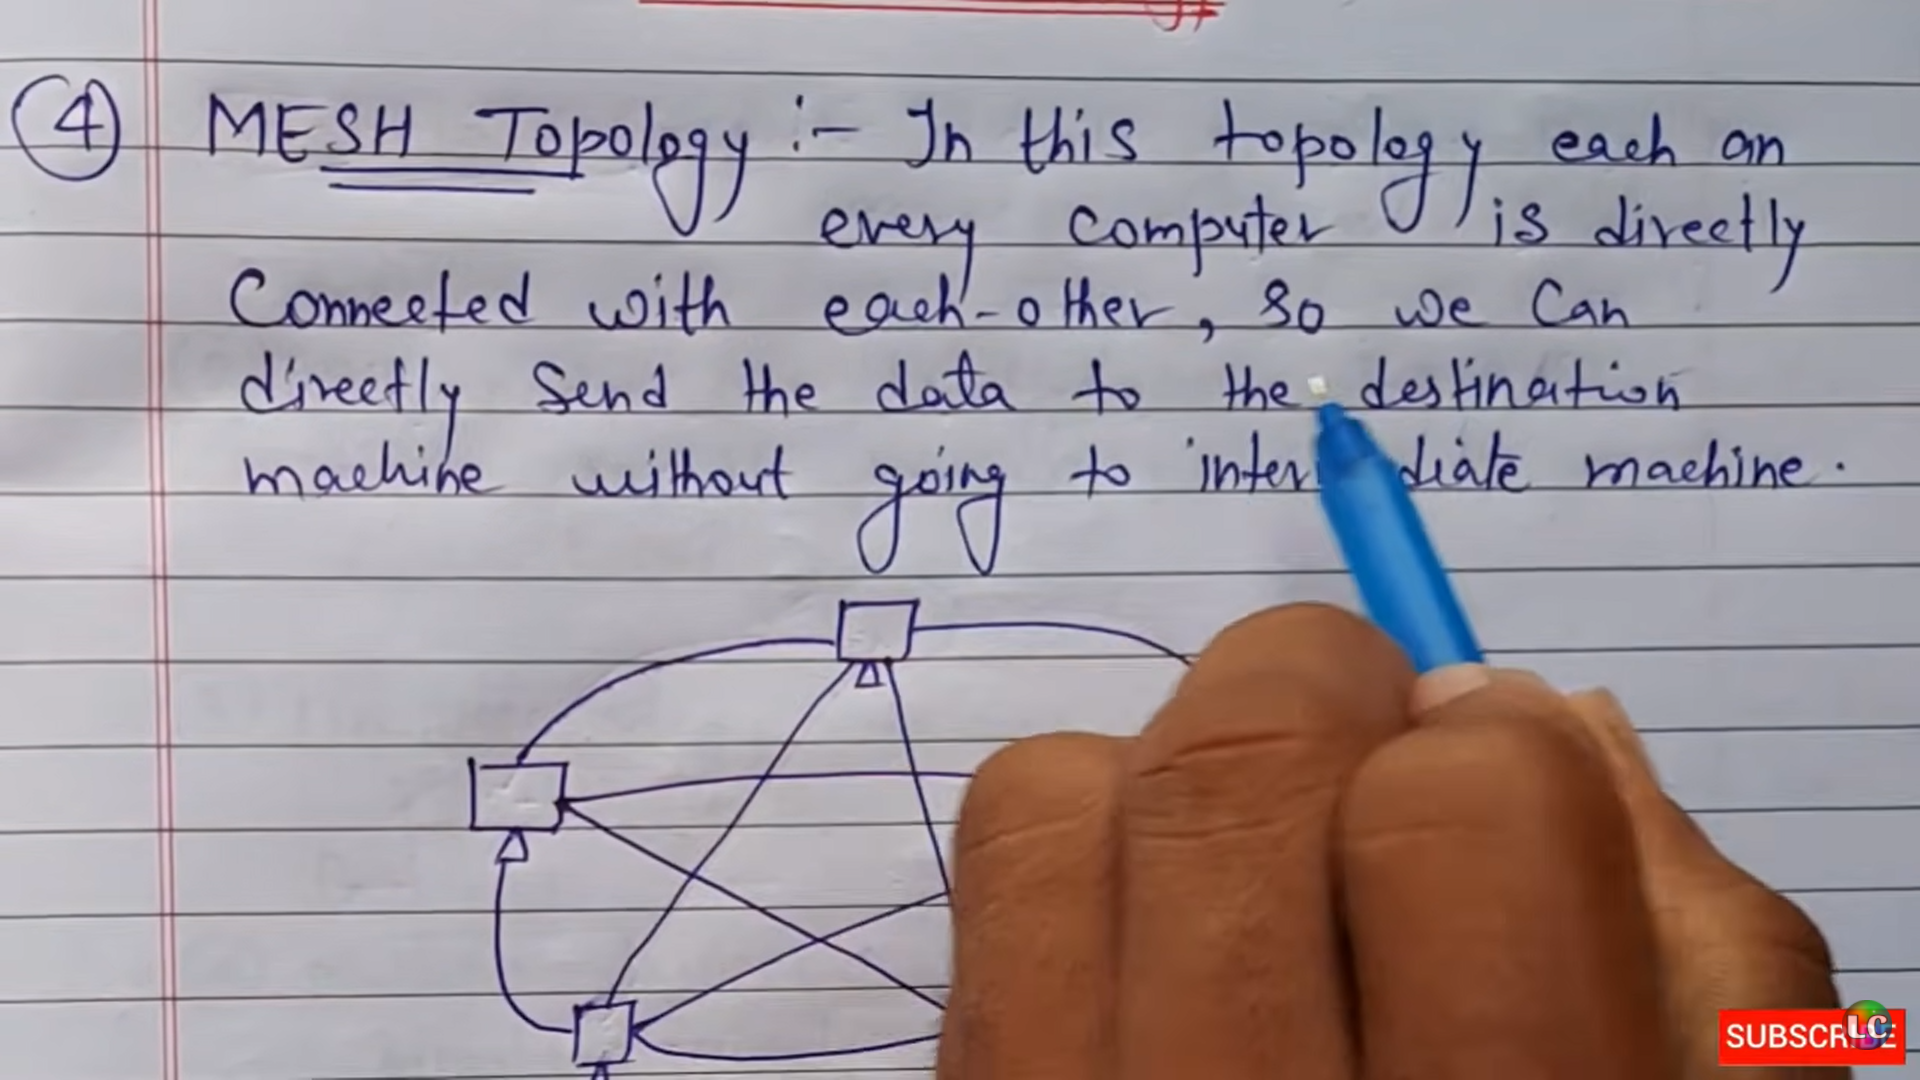 ④ MESH Topology :- In this topology each an
every computer is directly
Connected with each-other, so we can
directly send the data to the destination
machine without going to machine.
SUBSCRIBE
LC